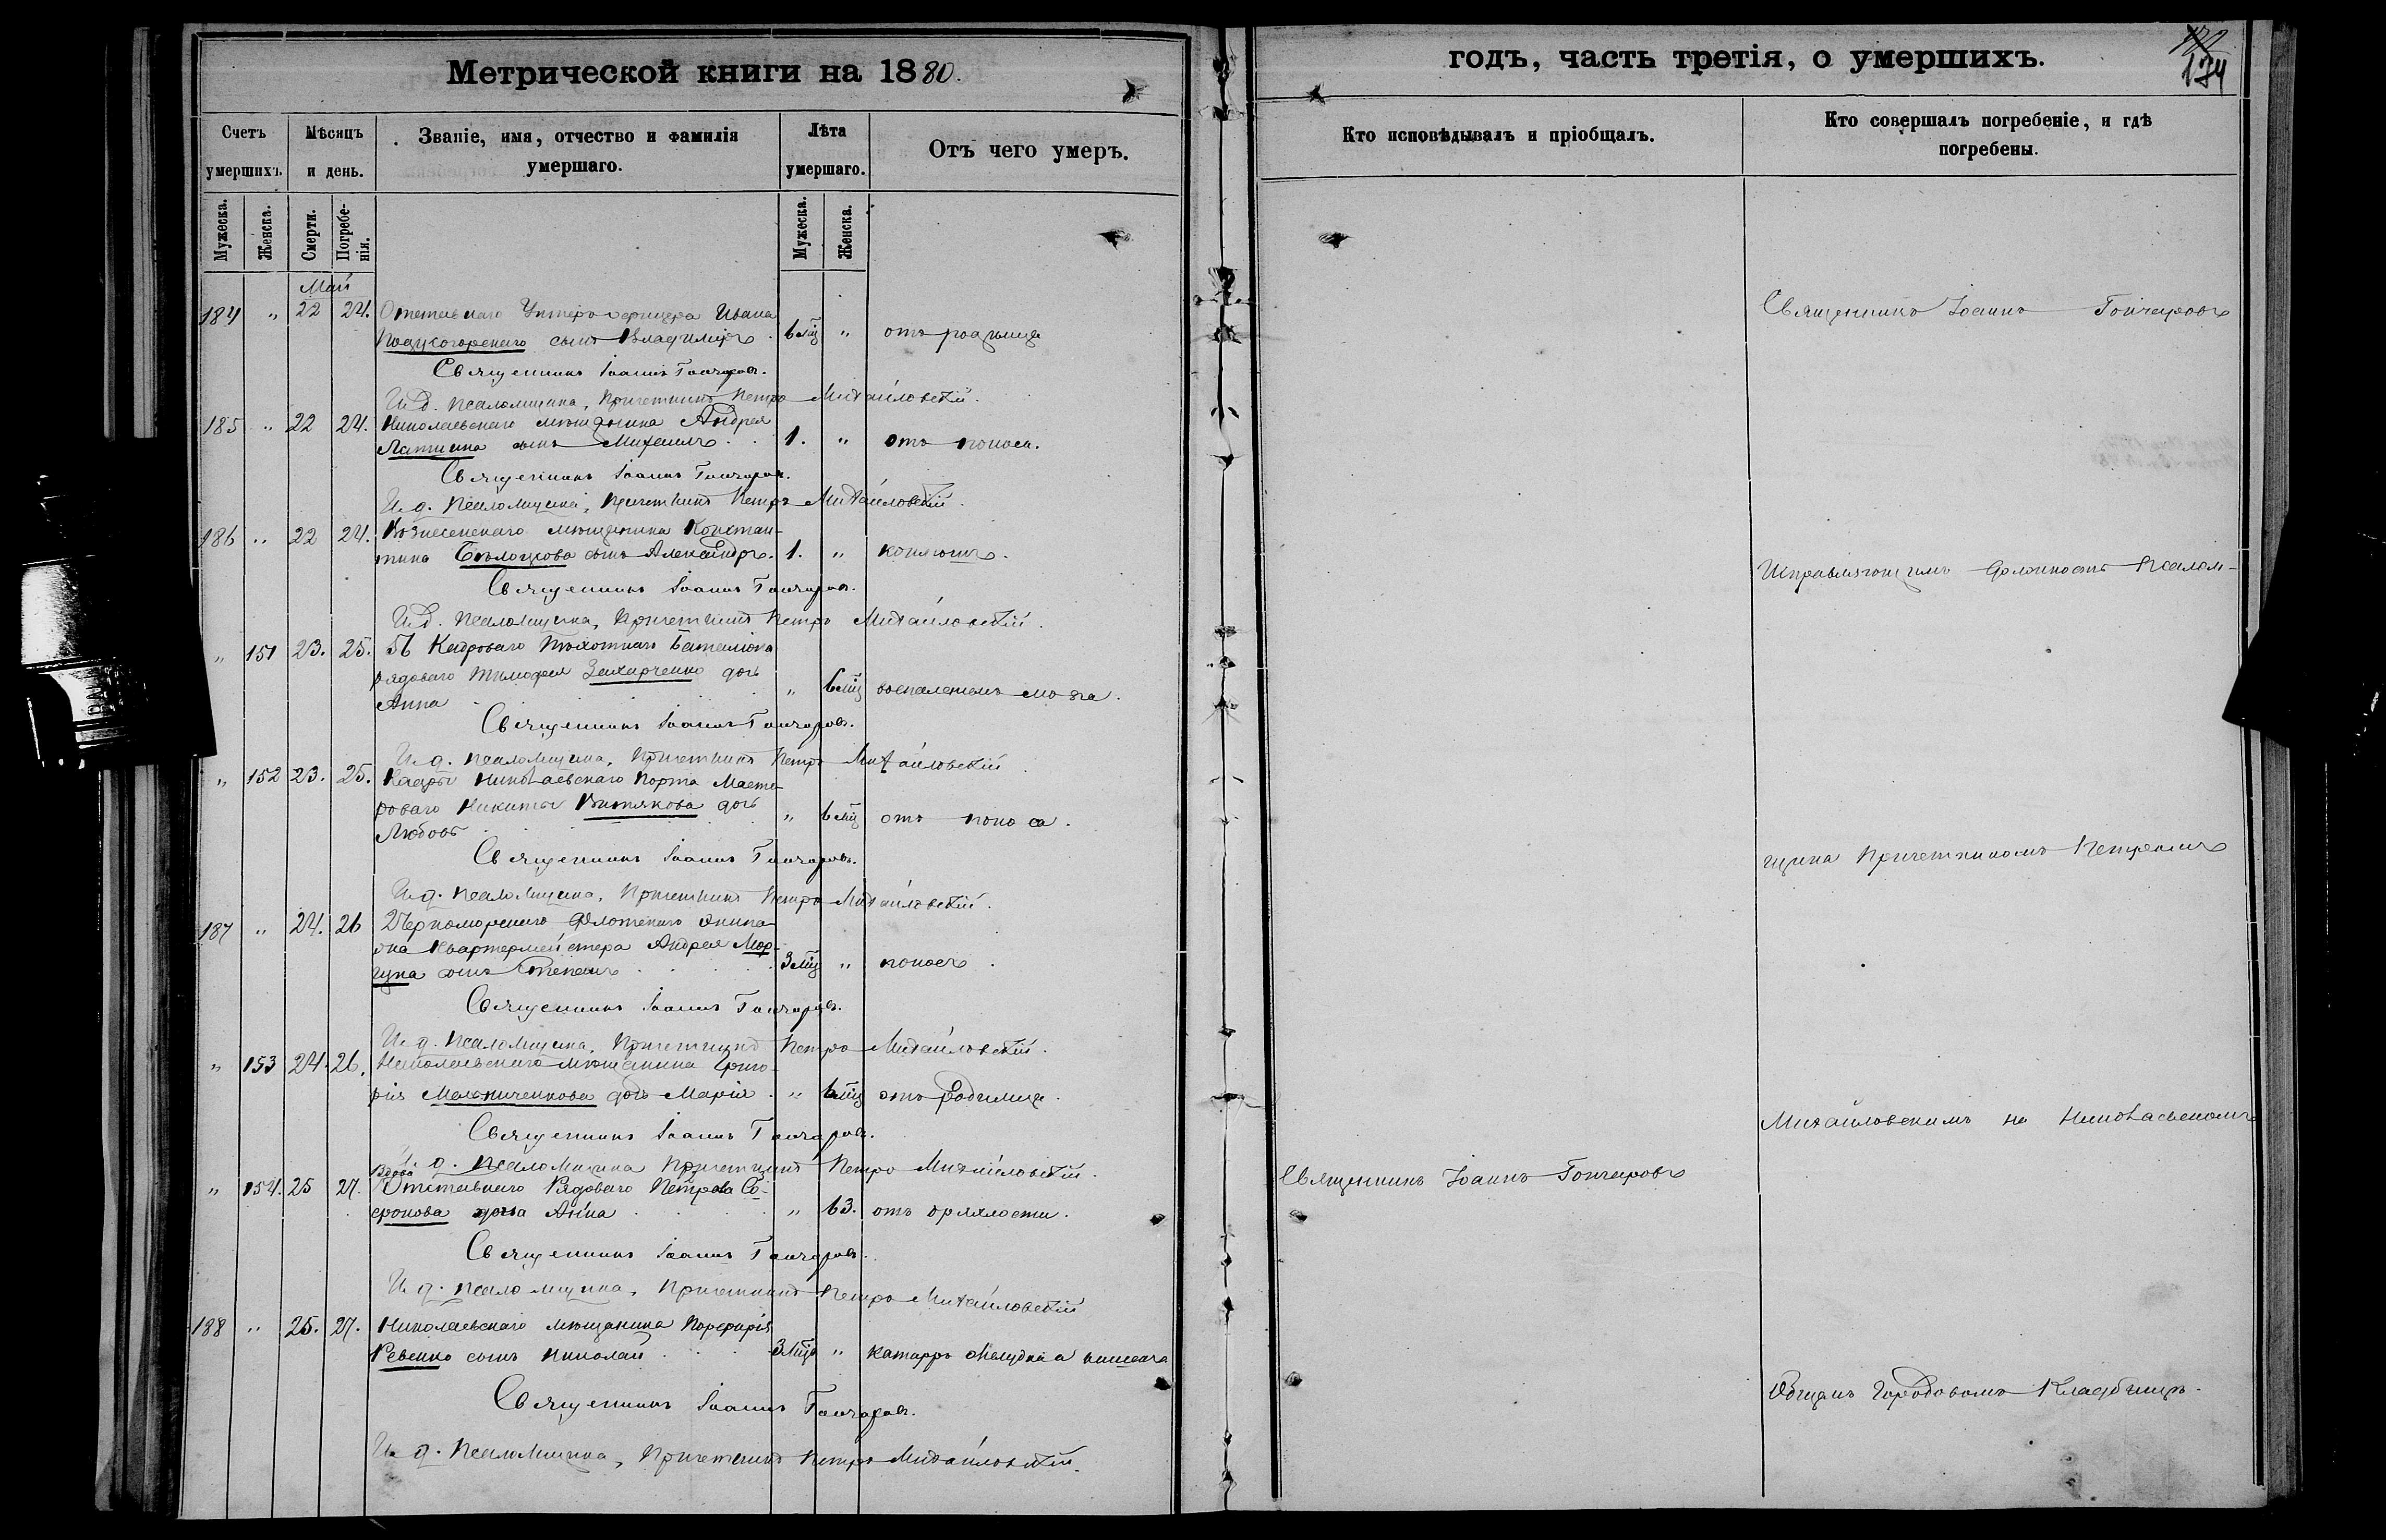 Метрической книги на 1880.
годъ, часть третія, о умершихъ.
134
Счетъ умершихъ.
Мѣсяцъ и день.
Званіе, имя, отчество и фамилія умершаго.
Лѣта умершаго.
Отъ чего умеръ.
Кто исповѣдывалъ и пріобщалъ.
Кто совершалъ погребеніе, и гдѣ погребены.
Мужеска.
Женска.
Смерти.
Погребенія.
Мужеска.
Женска.
Май
184 " 22 24. Отставнаго Унтеръ офицера Ивана
сынъ Владиміръ. 6 мц " отъ родимца
Священникъ Іоаннъ Гончаровъ.
И.д. Псаломщика, Причетникъ Петръ Михайловскій.
185 " 22 24. Николаевскаго мѣщанина Андрея
Латина сынъ Михаилъ. 1. " отъ поноса.
Священникъ Іоаннъ Гончаровъ.
И.д. Псаломщика, Причетникъ Петръ Михайловскій.
186 " 22 24. Вознесенскаго мѣщанина Констан-
тина Бѣлоусова сынъ Александръ. 1. " коклюшъ.
Священникъ Іоаннъ Гончаровъ.
И.д. Псаломщика, Причетникъ Петръ Михайловскій.
" 151 23. 25. 56 Кадроваго Пѣхотнаго Баталіона
рядоваго Тимофея Захарченко дочь
Анна " 6 мц воспаленіемъ мозга.
Священникъ Іоаннъ Гончаровъ.
И.д. Псаломщика, Причетникъ Петръ Михайловскій
" 152 23. 25. Кадры Николаевскаго Порта Масте-
роваго Никиты Витякова дочь
Любовь " 6 мц отъ поноса.
Священникъ Іоаннъ Гончаровъ.
И.д. Псаломщика, Причетникъ Петръ Михайловскій.
187 " 24. 26 Черноморскаго Флотскаго Экипа-
жа Квартермейстера Андрея Мор-
гуна сынъ Степанъ 3 мц " поносъ.
Священникъ Іоаннъ Гончаровъ.
И.д. Псаломщика, Причетникъ Петръ Михайловскій.
" 153 24. 26. Николаевскаго мѣщанина Григо-
рія Мельниченкова дочь Марія. " 6 мц отъ родимца.
Священникъ Іоаннъ Гончаровъ.
И.д. Псаломщика Причетникъ Петръ Михайловскій.
Вдова
" 154. 25 27. Отставнаго Рядоваго Петрова Со-
фронова Анна " 63. отъ дряхлости.
Священникъ Іоаннъ Гончаровъ.
И.д. Псаломщика, Причетникъ Петръ Михайловскій
188 " 25. 27. Николаевскаго мѣщанина Порфирія
Ревенко сынъ Николай 3 мц " катарръ желудка и кишекъ
Священникъ Іоаннъ Гончаровъ.
И.д. Псаломщика, Причетникъ Петръ Михайловскій.
Священникъ Іоаннъ Гончаровъ
Священникъ Іоаннъ Гончаровъ
Исправляющимъ должность Псалом-
щика Причетникомъ Петромъ
Михайловскимъ на Николаевскомъ
Общемъ Городовомъ Кладбищѣ.